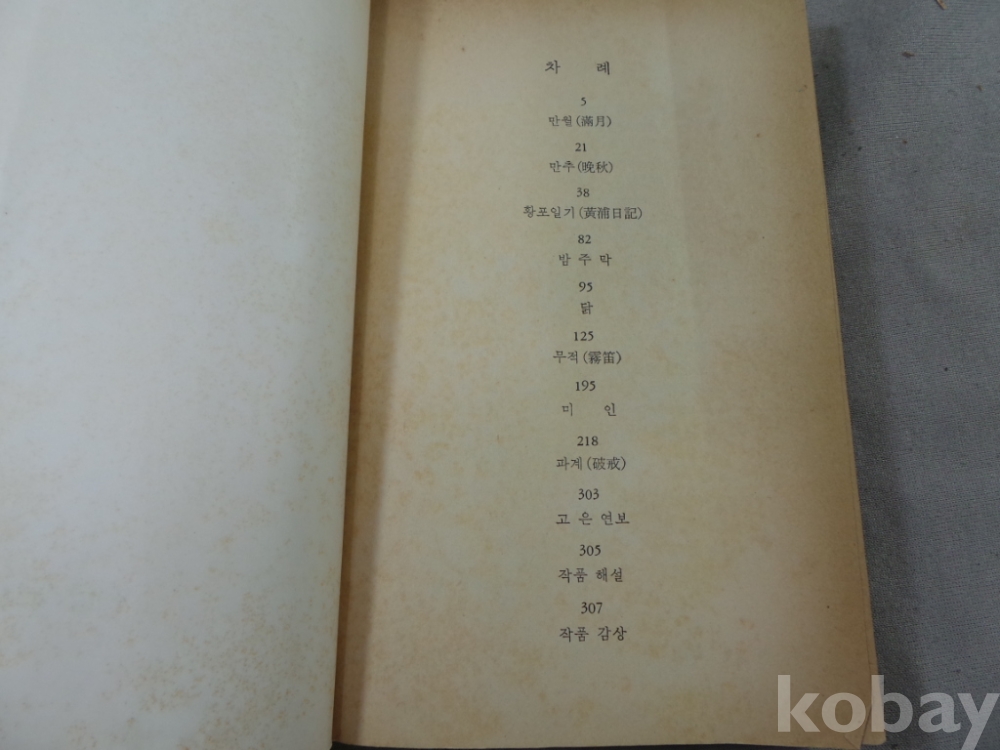 차 례
5
만월(滿月)
21
만추(晩秋)
38
황포일기(黃浦日記)
82
밤 주 막
95
닭
125
무적(霧笛)
195
미 인
218
파계(破戒)
303
고 은 연보
305
작품 해설
307
작품 감상
kobay